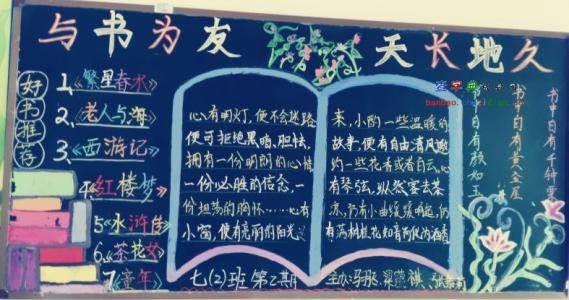 与书为友 天长地久
好书推荐
1、《繁星春水》
2、《老人与海》
3、《西游记》
4《红楼梦》
5《水浒传》
6、《茶花女》
7《童年》
心有明灯,便不会迷路,
便可拒绝黑暗、胆怯,
拥有一份明朗的心情,
一份必胜的信念,一
份坦荡的胸怀……心有
小窗,便有亮丽的阳光
来,小酌一些温暖的
故事,便有自由清风邀
约一些花香或者白云,心
有琴弦,纵然客去茶
凉,仍有小曲缓缓响起,仍
有满树桂花知音
书中自有千钟粟
书中自有黄金屋
书中自有颜如玉
七(2)班 第2期
主办: